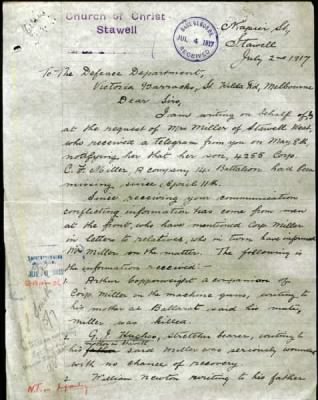 Church of Christ
Stawell
Napier St,
Stawell
July 2nd 1917
MELBOURNE
JUL 4 1917
RECEIVED
To The Defence Department,
Victoria Barracks, St Kilda Rd, Melbourne
Dear Sirs,
I am writing on behalf of, &
at the request of Mrs Miller of Stawell West,
who received a telegram from you on May 8th
notifying her that her son, 4255 Corp.
C. F. Miller A company 14 Battalion had been
missing, since April 11th.
Since receiving your communication
conflicting information has come from men
at the front, who have mentioned Corp. Miller
in letter to relatives, who in turn have informed
Mrs Miller on the matter. The following is
the information received :-
1. Arthur Copperwright a companion of
Corp. Miller in the machine guns, writing to
his mother at Ballarat said his mate,
Miller was killed.
2. G. E. Hughes, stretcher bearer, writing to
his said Miller was seriously wounded
with no chance of recovery.
3. William Newton writing to his father